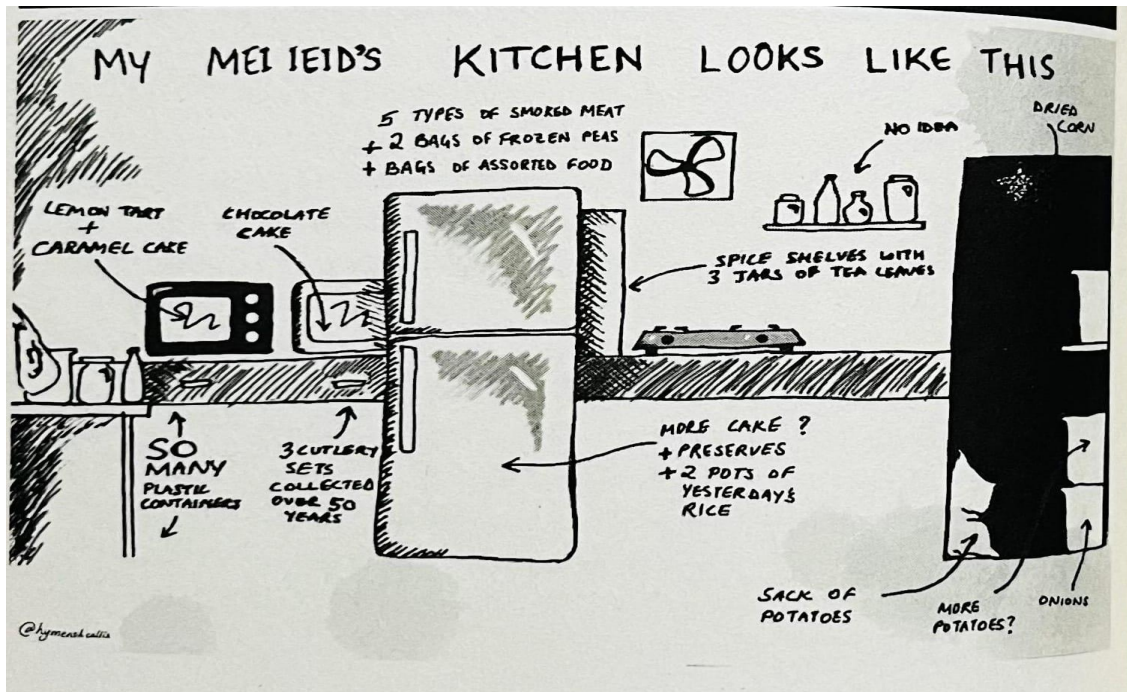 MY MEIIEID'S KITCHEN LOOKS LIKE THIS
5 TYPES OF SMOKED MEAT
+ 2 BAGS OF FROZEN PEAS
+ BAGS OF ASSORTED FOOD
DRIED
CORN
NO IDEA
LEMON TART
+
CARAMEL CAKE
CHOCOLATE
CAKE
SPICE SHELVES WITH
3 JARS OF TEA LEAVES
SO
MANY
PLASTIC
CONTAINERS
3 CUTLERY
SETS
COLLECTED
OVER 50
YEARS
MORE CAKE ?
+ PRESERVES
+ 2 POTS OF
YESTERDAY'S
RICE
SACK OF
POTATOES
MORE
POTATOES?
ONIONS